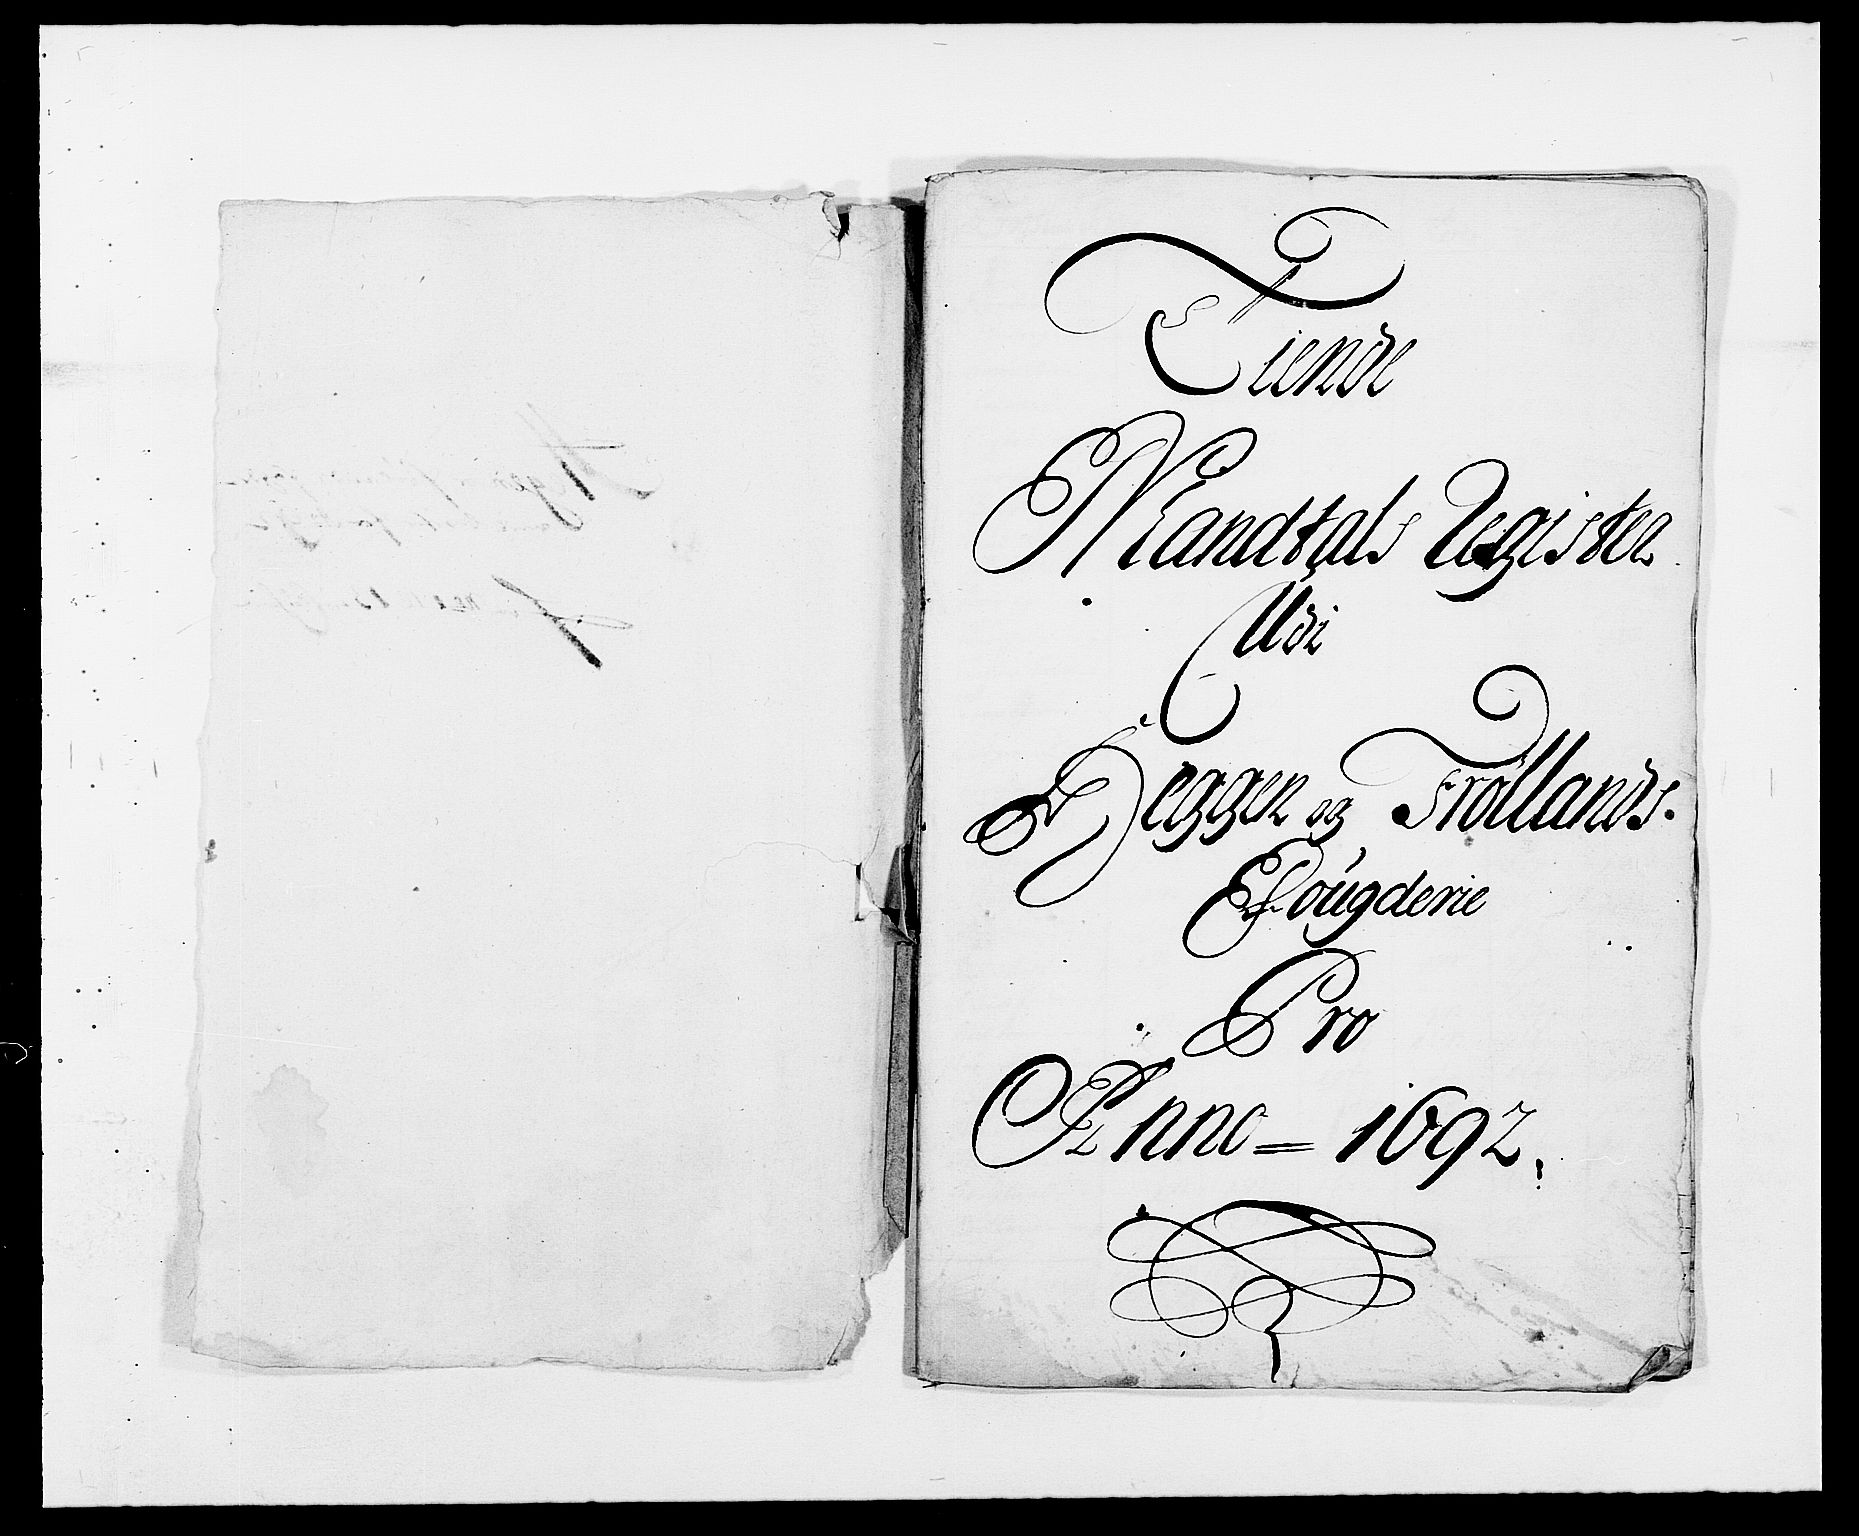 Tiende
Mandtals Register
Udi
Heggen og Frøllands.
Fougderie
Pro
Anno = 1692.